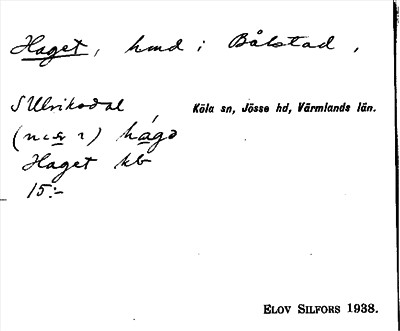 Haget, hmd i Bålstad,
S Ulriksdal Köla sn, Jösse hd, Värmlands län.
hágə
Haget kb
15:-
ELOV SILFORS 1938.